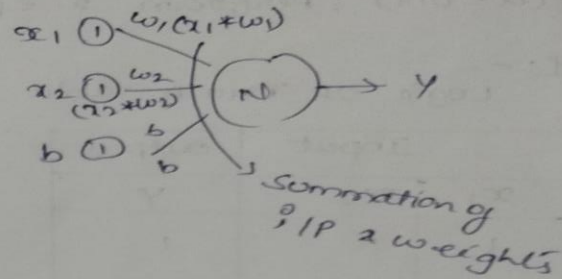 x1 1 w1 (x1*w1)
x2 1 w2
(x2*w2)
N
Y
b 1 b
b
Summation of
i/P x weights